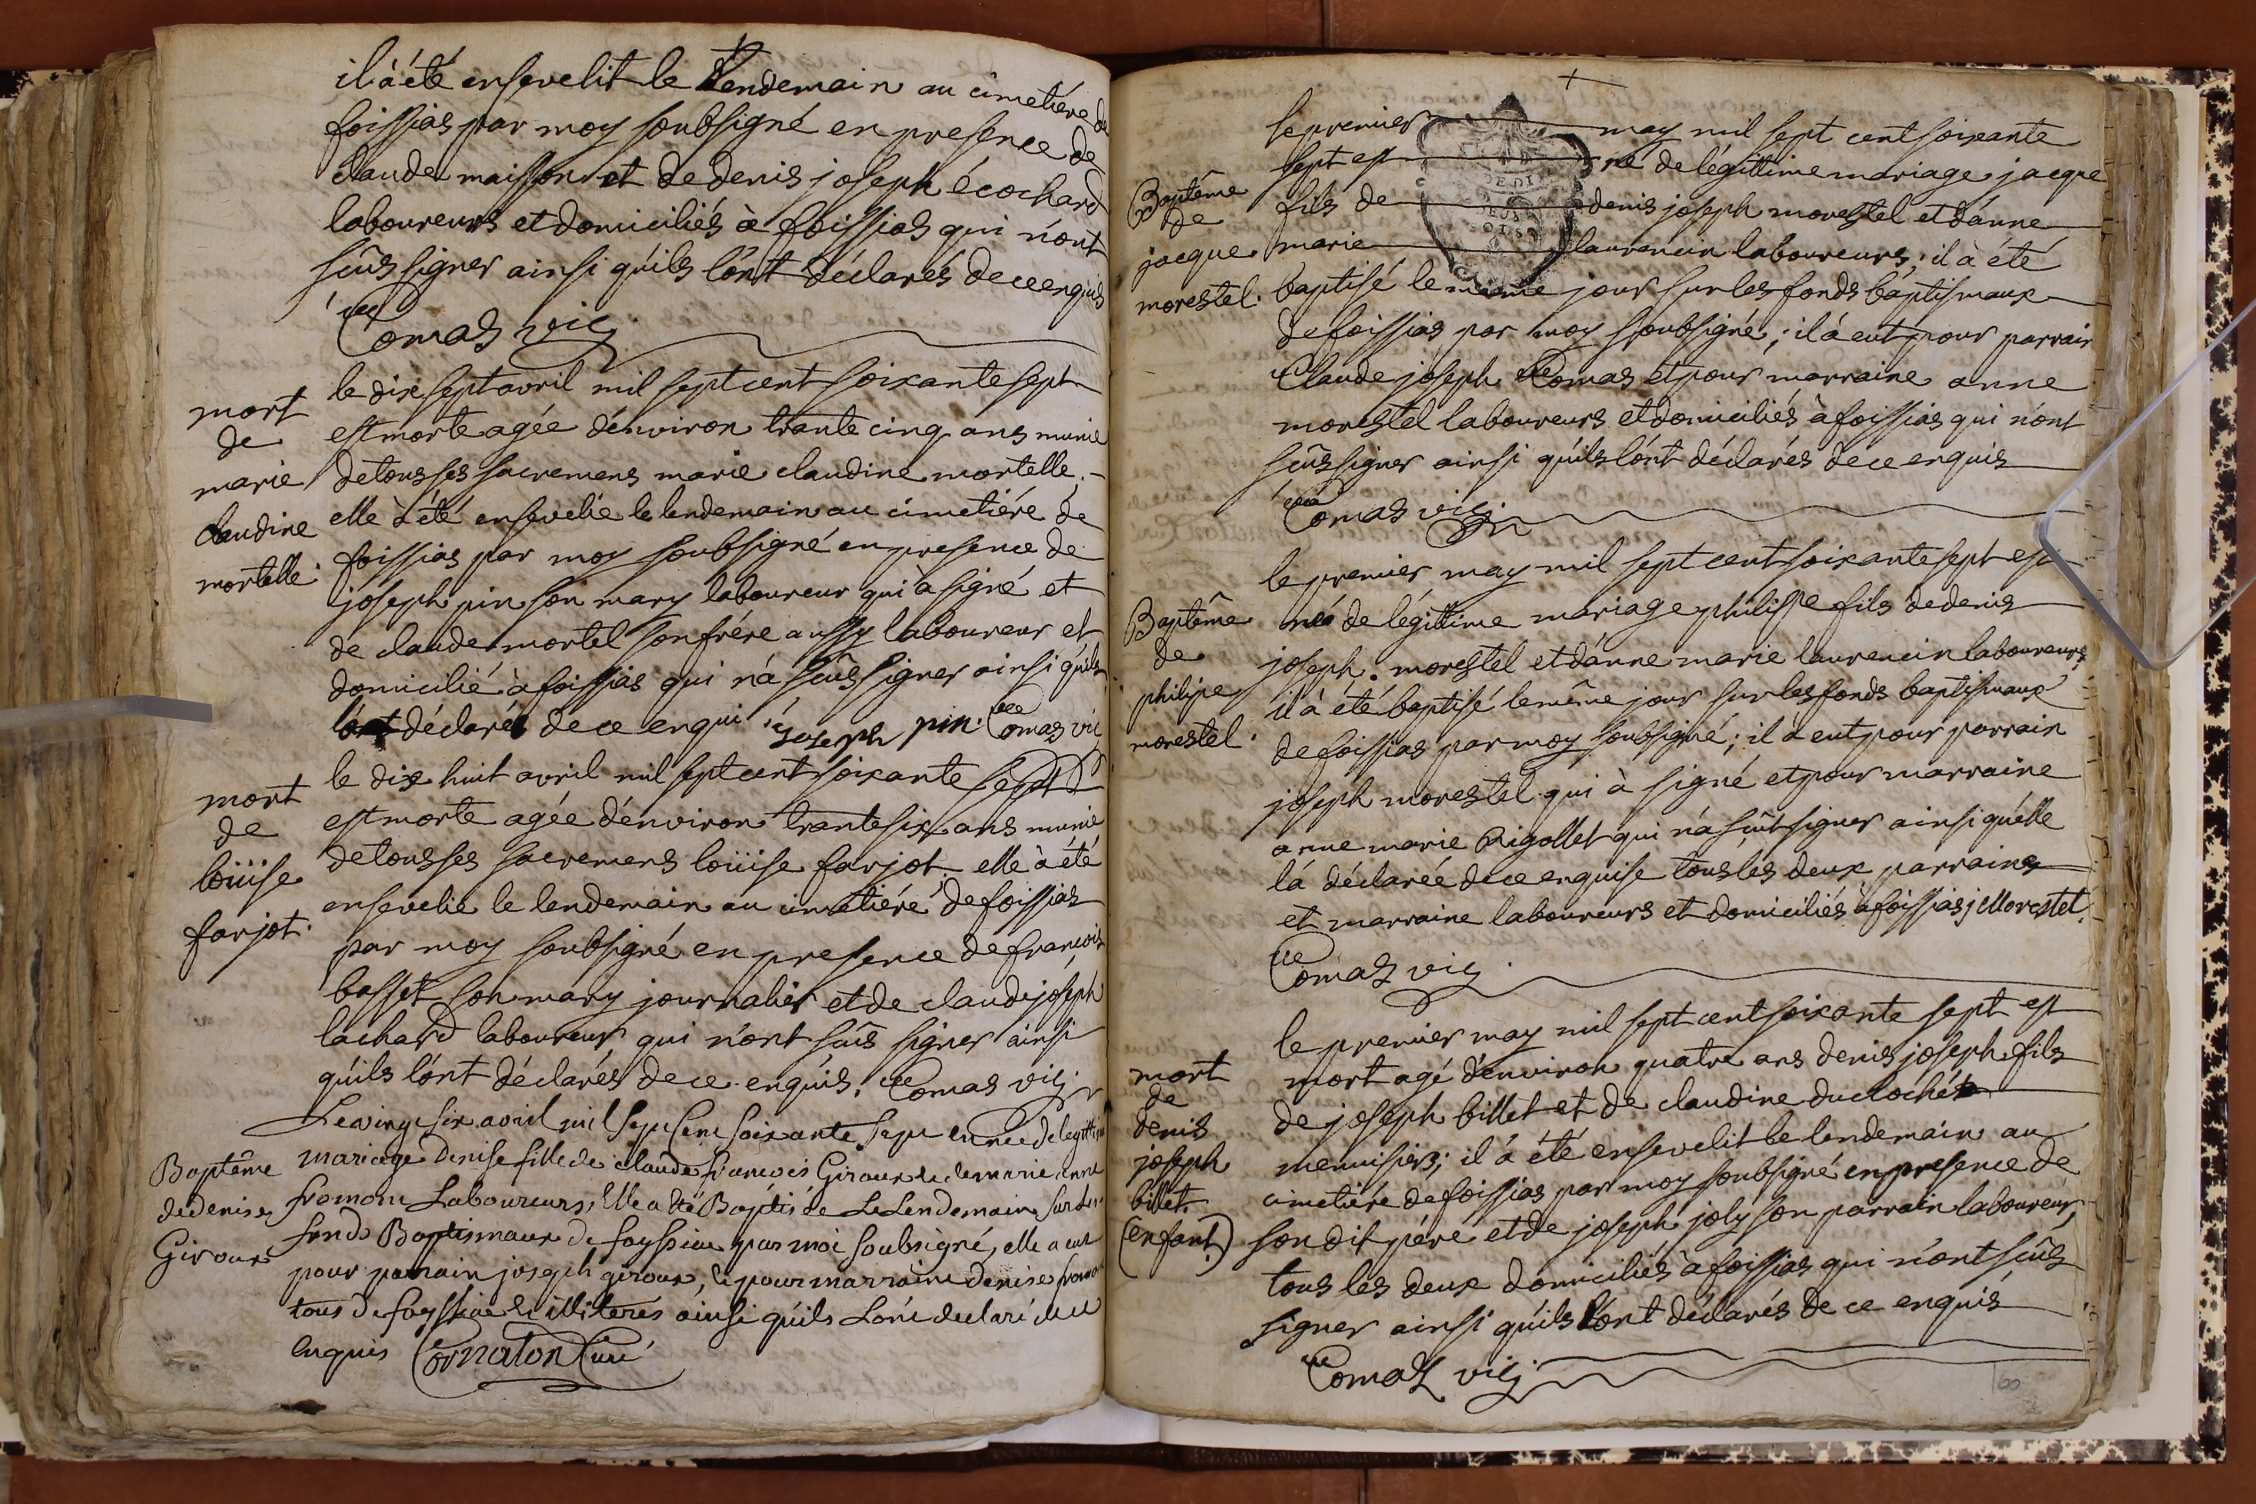 il à été ensevelit le lendemain au cimetiére de
foissias par moy soubsigné en presence de
claude maisson et de denis joseph écochard
laboureurs et domiciliés à foissias qui n'ont
sçûs signer ainsi qu'ils l'ónt déclarés de ce enquis
Comas vic
mort
de
marie
claudine
mortelle.
le dix sept avril mil sept cent soixante sept
est morte agée d'environ trante cinq ans munie
de tous ses sacremens marie claudine mortelle.
elle à été ensevelie le lendemain au cimetiére de
foissias par moy soubsigné en presence de
joseph pin son mary laboureur qui à signé et
de claude mortel son frére aussy laboureur et
domicilié à foissias qui n'á sçûs signer ainsi qu'ils
déclaré de ce enqui joseph pin. Comas vic
mort
de
loüise
farjot.
le dix huit avril mil sept cent soixante sept
est morte agée d'environ trante six ans munie
de tous ses sacremens loüise farjot. elle à été
ensevelie le lendemain au cimetiére de foissias
par moy soubsigné en presence de françois
basset son mary journalier et de claude joseph
lachard laboureur qui n'ont sçûs signer ainsi
qu'ils l'ónt déclarés de ce enquis. Comas vic.
Baptême
de denise
Giroux
Le vingt six avril mil sept cent soixante sept est née de legitti
mariage denise fille de claude françois Giroux et de marie anne
fromont Laboureurs, Elle a été Baptisée Le Lendemain sur les
fonds Baptismaux de foyssiae par moi soubsigné, elle a eut
pour parrain joseph giroux, et pour marraine denise fromon
tous de foyssiae et illiterés ainsi qu'ils L'ont declaré de ce
enquis Cornaton Curé
Baptême
de
jacque
morestel.
le premier may mil sept cent soixante
sept est né de légittime mariage jacque
fils de denis joseph morestel et d'anne
marie laurencin laboureurs; il à été
baptisé le même jour sur les fonds baptismaux
de foissias par moy soubsigné; il à eut pour parrain
Claude joseph Comas et pour marraine anne
morestel laboureurs et domiciliés à foissias qui n'ont
sçûs signer ainsi qu'ils l'ónt déclarés de ce enquis
Comas vic.
Baptême
de
philipe
morestel.
le premier may mil sept cent soixante sept est
né de légittime mariage philippe fils de denis
joseph. morestel et d'anne marie laurencin laboureurs;
il à été baptisé le même jour sur les fonds baptismaux
de foissias par moy soubsigné; il à eut pour parrain
joseph morestel qui à signé et pour marraine
anne marie Rigollet qui n'a sçût signer ainsi qu'elle
l'á déclarée de ce enquise tous les deux parrains
et marraine laboureurs et domiciliés à foissias j Morestet.
Comas vic.
mort
de
denis
joseph
billet.
(enfant)
le premier may mil sept cent soixante sept est
mort agé d'environ quatre ans denis joseph fils
de joseph billet et de claudine duclochét
menuisiers; il à été ensevelit le lendemain au
cimetiére de foissias par moy soubsigné en presence de
son dit pére et de joseph joly son parrain laboureur,
tous les deux domiciliés à foissias qui n'ont sçûs
signer ainsi qu'ils l'ónt déclarés de ce enquis
Comas vic.
60